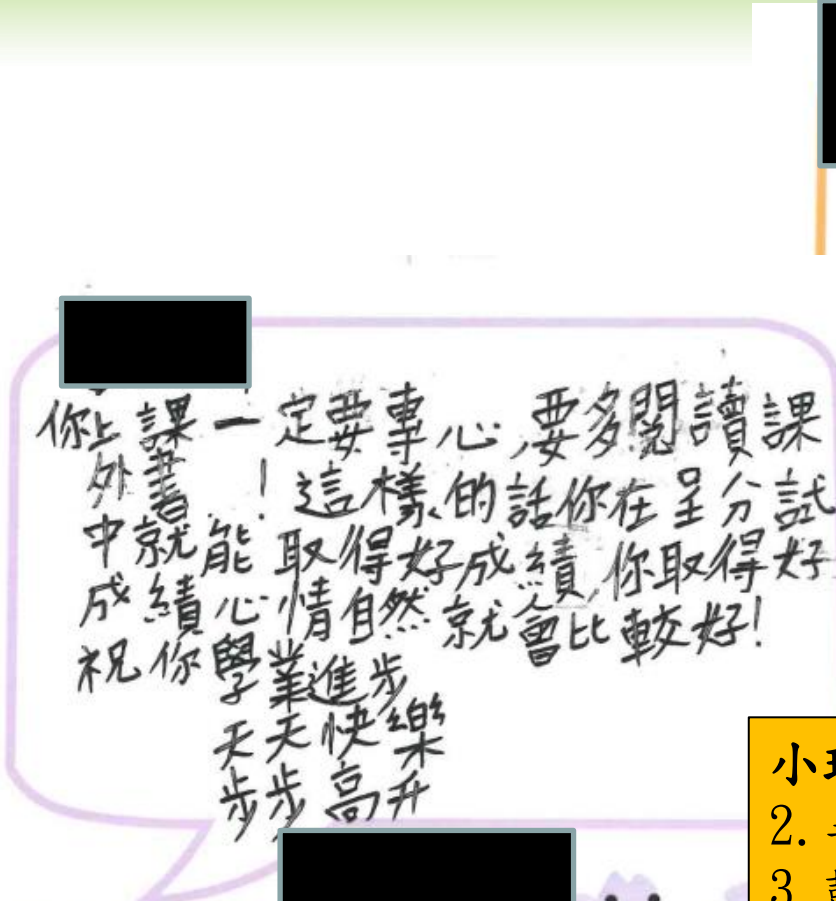 你上課一定要專心,要多閱讀課
外書!這樣的話你在呈分試
中就能取得好成績,你取得好
成績心情自然就會比較好!
祝你學業進步
天天快樂
步步高升
小
2.
3.